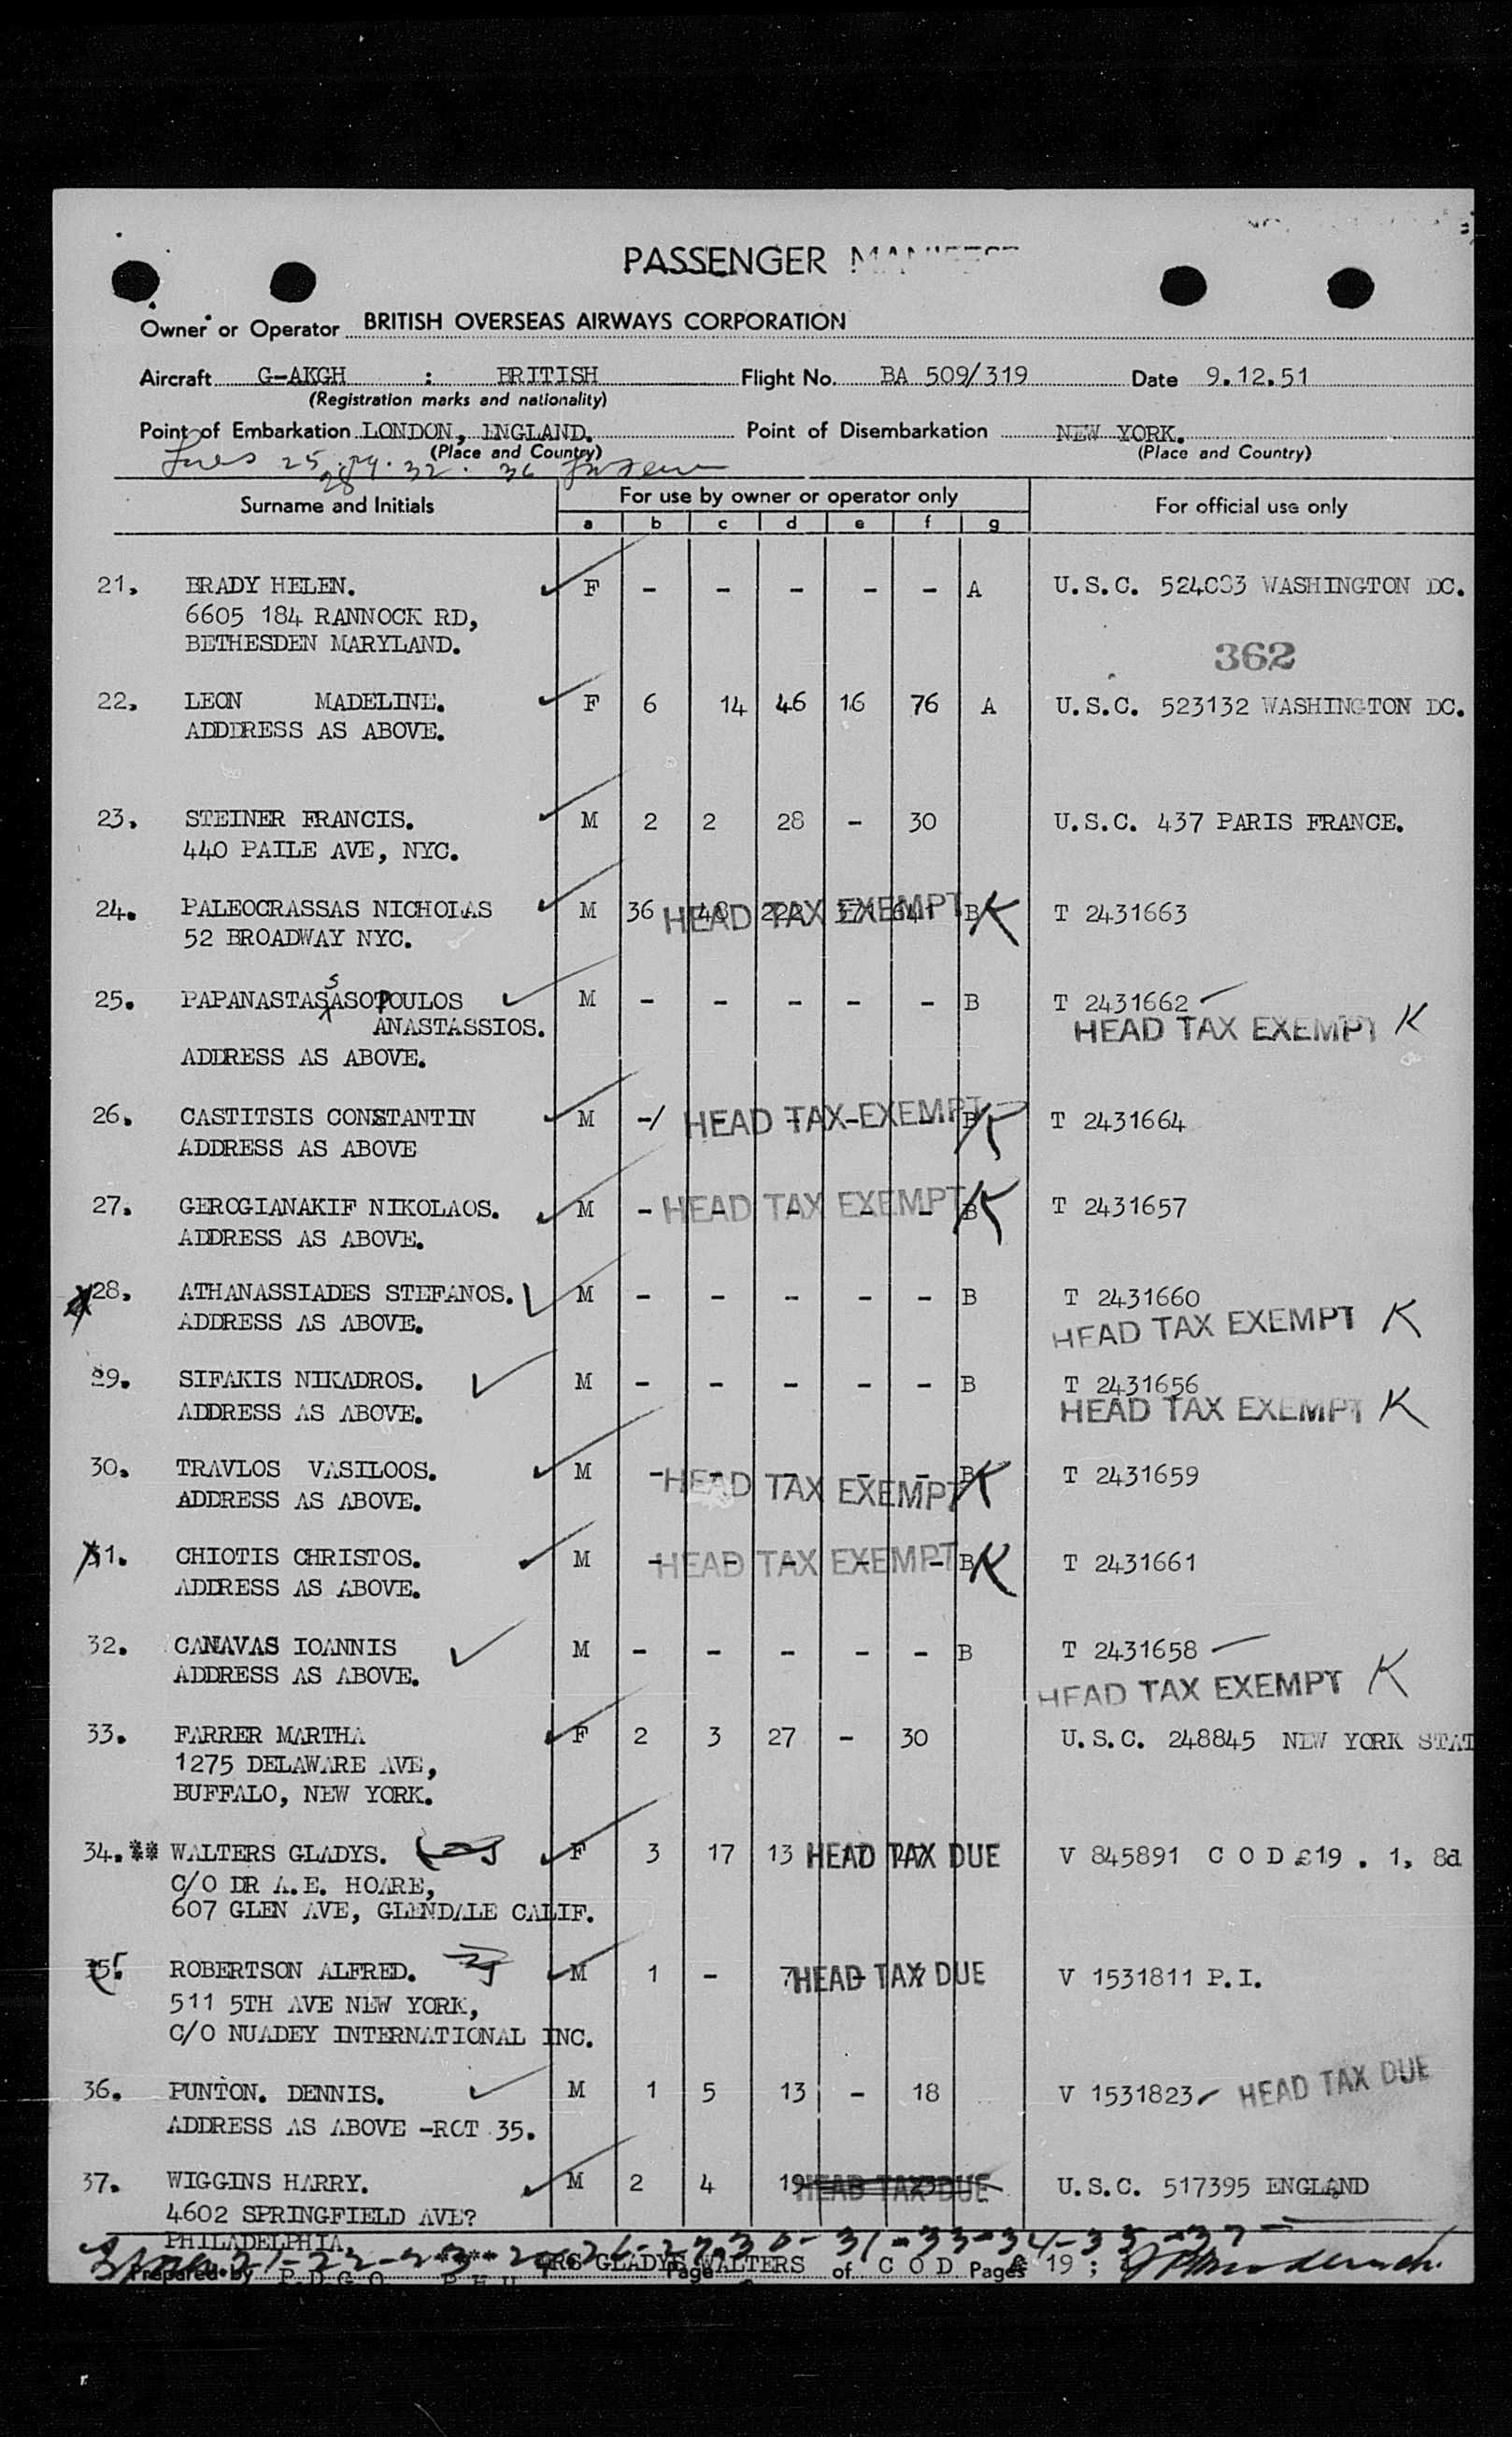 PASSENGER
Owner or Operator BRITISH OVERSEAS AIRWAYS CORPORATION
Aircraft G-AKGH : BRITISH Flight No. BA 509/319 Date 9.12.51
(Registration marks and nationality)
Point of Embarkation LONDON, ENGLAND. Point of Disembarkation NEW YORK.
(Place and Country) (Place and Country)
25. 32. 36
28
Surname and Initials For use by owner or operator only For official use only
a b c d e f g
21. BRADY HELEN. F - - - - - A U.S.C. WASHINGTON DC.
6605 184 RANNOCK RD,
BETHESDEN MARYLAND.
362
22. LEON MADELINE. F 6 14 46 16 76 A U.S.C. 523132 WASHINGTON DC.
ADDDRESS AS ABOVE.
23. STEINER FRANCIS. M 2 2 28 - 30 U.S.C. 437 PARIS FRANCE.
440 PAILE AVE, NYC.
24. PALEOCRASSAS NICHOLAS M 36 48 HEAD TAX EXEMPT B K T 2431663
52 BROADWAY NYC.
s
25. PAPANASTASASOPOULOS M - - - - - B T 2431662
ANASTASSIOS. HEAD TAX EXEMPT K
ADDRESS AS ABOVE.
26. CASTITSIS CONSTANTIN M -/ HEAD TAX EXEMPT B K T 2431664
ADDRESS AS ABOVE
27. GEROGIANAKIF NIKOLAOS. M - HEAD TAX EXEMPT B K T 2431657
ADDRESS AS ABOVE.
28. ATHANASSIADES STEFANOS. M - - - - - B T 2431660
ADDRESS AS ABOVE. HEAD TAX EXEMPT K
29. SIFAKIS NIKADROS. M - - - - - B T 2431656
ADDRESS AS ABOVE. HEAD TAX EXEMPT K
30. TRAVLOS VASILOOS. M - HEAD TAX EXEMPT B K T 2431659
ADDRESS AS ABOVE.
31. CHIOTIS CHRISTOS. M - HEAD TAX EXEMPT B K T 2431661
ADDRESS AS ABOVE.
32. CANAVAS IOANNIS M - - - - - B T 2431658
ADDRESS AS ABOVE. HEAD TAX EXEMPT K
33. FARRER MARTHA F 2 3 27 - 30 U.S.C. 248845 NEW YORK STAT
1275 DELAWARE AVE,
BUFFALO, NEW YORK.
34.** WALTERS GLADYS. F 3 17 13 HEAD TAX DUE V 845891 C O D £19 . 1. 8d
C/O DR A.E. HOARE,
607 GLEN AVE, GLENDALE CALIF.
35. ROBERTSON ALFRED. M 1 - 7 HEAD TAX DUE V 1531811 P.I.
511 5TH AVE NEW YORK,
C/O NUADEY INTERNATIONAL INC.
36. PUNTON. DENNIS. M 1 5 13 - 18 V 1531823 HEAD TAX DUE
ADDRESS AS ABOVE -RCT 35.
37. WIGGINS HARRY. M 2 4 19 HEAD TAX DUE 23 U.S.C. 517395 ENGLAND
4602 SPRINGFIELD AVE?
PHILADELPHIA
30-31-33-34-35-37-
Prepared by GLADYS WALTERS Page of C O D Pages 19 ;